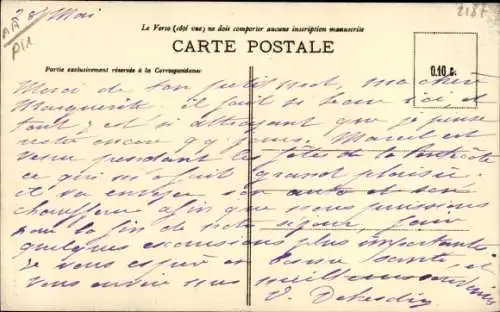 28 Mai
2187
AR
P11
Le Verso (côté vue) ne doit comporter aucune inscription manuscrite
CARTE POSTALE
Partie exclusivement réservée à la Correspondance
0.10 c.
Merci de ton petit mot, ma chère
Marguerite il fait si beau ici et
tout y est si attrayant que je pense
rester encore qq jours. Marcel est
venu pendant les fêtes de la Pentecôte
ce qui m'a fait grand plaisir.
il a envoyé son auto et son
chauffeur afin que nous puissions
pour la fin de notre séjour faire
quelques excursions plus importantes
Je vous espère en bonne santé, et
vous envoie nos meilleurs
V.